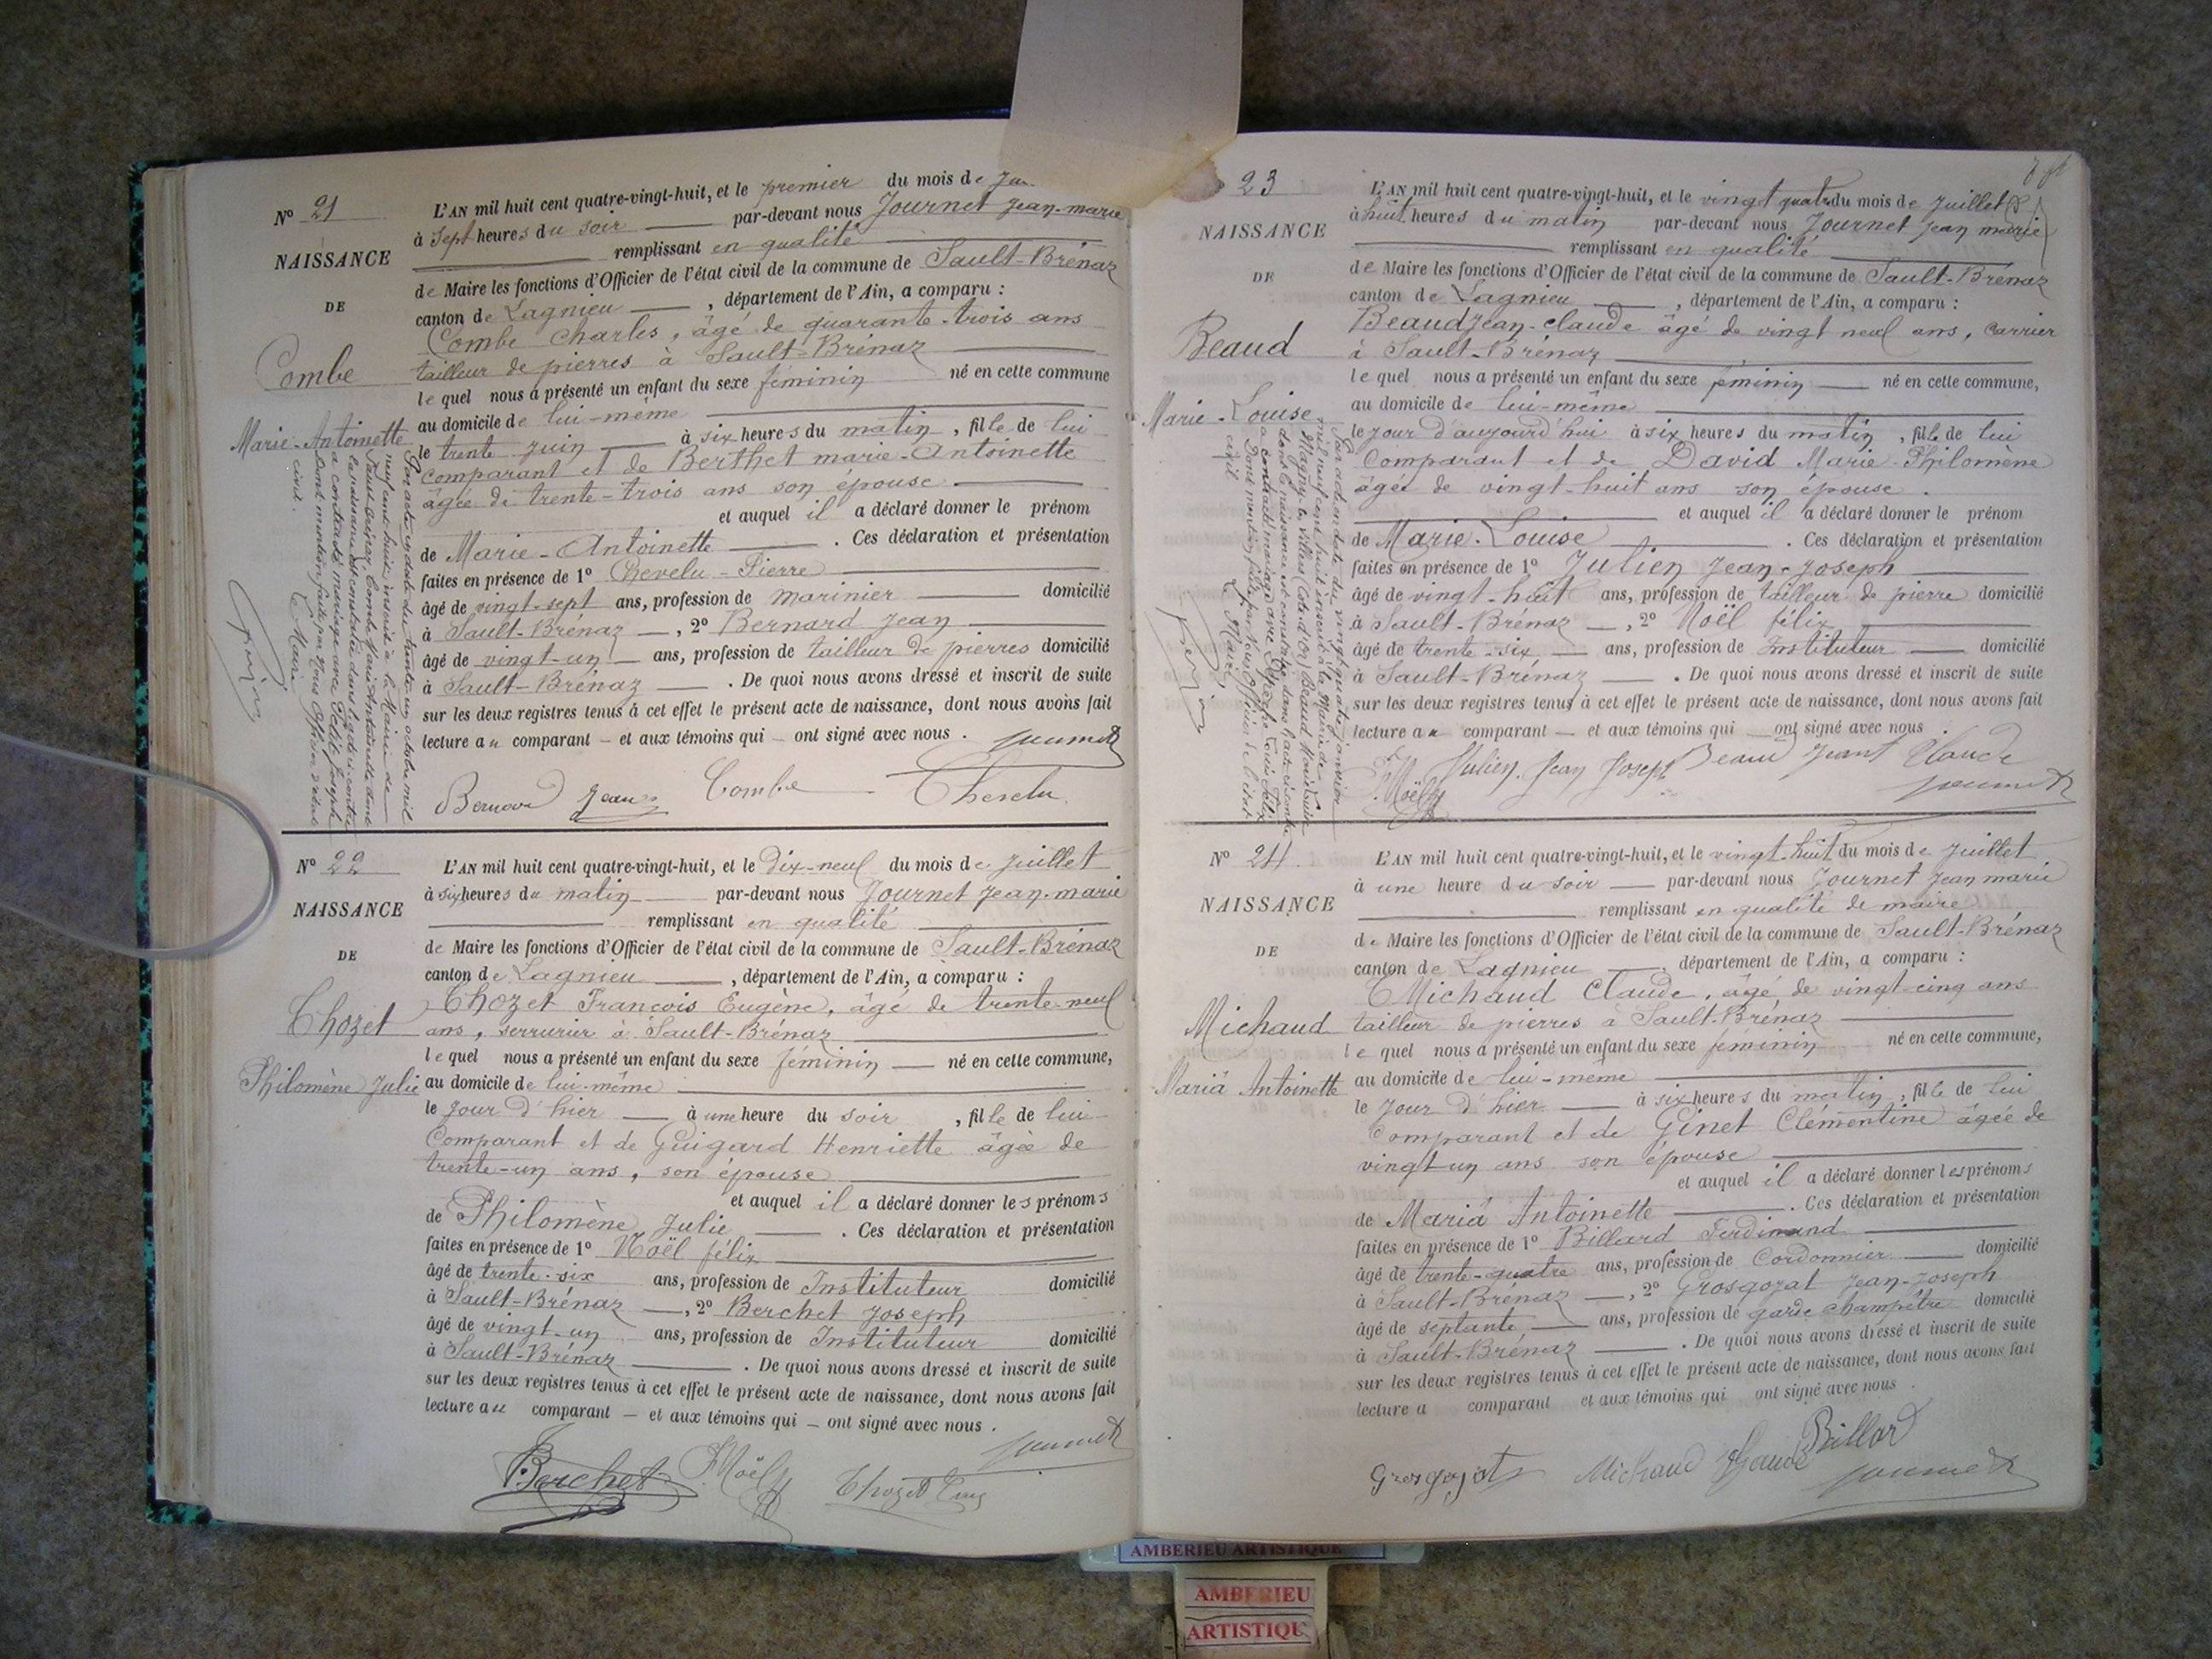 N° 21
NAISSANCE
DE
Combe
Marie-Antoinette
L'AN mil huit cent quatre-vingt-huit, et le premier du mois de
à Sept heures du soir par-devant nous Journet Jean-marie
remplissant en qualité
de Maire les fonctions d'Officier de l'état civil de la commune de Sault-Brénaz
canton de Lagnieu , département de l'Ain, a comparu :
Combe Charles, âgé de quarante-trois ans
tailleur de pierres à Sault-Brénaz
lequel nous a présenté un enfant du sexe féminin né en cette commune
au domicile de lui-même
le trente juin à six heures du matin, fille de lui
comparant et de Berthet marie-Antoinette
âgée de trente-trois ans son épouse
et auquel il a déclaré donner le prénom
de Marie-Antoinette . Ces déclaration et présentation
faites en présence de 1° Chevelu-Pierre
âgé de vingt-sept ans, profession de marinier domicilié
à Sault-Brénaz , 2° Bernard Jean
âgé de vingt-un ans, profession de tailleur de pierres domicilié
à Sault-Brénaz . De quoi nous avons dressé et inscrit de suite
sur les deux registres tenus à cet effet le présent acte de naissance, dont nous avons fait
lecture au comparant – et aux témoins qui – ont signé avec nous . Journet
Bernard Jean Combe Chevelu
Par acte en date du trente un octobre mil
neuf cent huit inscrit à la Mairie de
Sault-Brénaz, Combe Marie Antoinette dont
la naissance est constatée dans l'acte ci-contre
a contracté mariage avec Joseph
Dont mention faite par nous Officier d'état
civil. Le Maire
N° 22
NAISSANCE
DE
Chozet
Philomène Julie
L'AN mil huit cent quatre-vingt-huit, et le Dix-neuf du mois de juillet
à six heures du matin par-devant nous Journet Jean-marie
remplissant en qualité
de Maire les fonctions d'Officier de l'état civil de la commune de Sault-Brénaz
canton de Lagnieu , département de l'Ain, a comparu :
Chozet François Eugène, âgé de trente-neuf
ans, serrurier à Sault-Brénaz
lequel nous a présenté un enfant du sexe féminin né en cette commune,
au domicile de lui-même
le jour d'hier à une heure du soir , fille de lui
comparant et de Guigard Henriette âgée de
trente-un ans, son épouse
et auquel il a déclaré donner les prénoms
de Philomène Julie . Ces déclaration et présentation
faites en présence de 1° Noël félix
âgé de trente-six ans, profession de Instituteur domicilié
à Sault-Brénaz , 2° Berchet Joseph
âgé de vingt-un ans, profession de Instituteur domicilié
à Sault-Brénaz . De quoi nous avons dressé et inscrit de suite
sur les deux registres tenus à cet effet le présent acte de naissance, dont nous avons fait
lecture au comparant – et aux témoins qui – ont signé avec nous .
Journet
Berchet Noël Chozet Eug
23
NAISSANCE
DE
Beaud
Marie-Louise
L'AN mil huit cent quatre-vingt-huit, et le vingt quatre du mois de juillet
à huit heures du matin par-devant nous Journet Jean marie
remplissant en qualité
de Maire les fonctions d'Officier de l'état civil de la commune de Sault-Brénaz
canton de Lagnieu , département de l'Ain, a comparu :
Beaud Jean-claude âgé de vingt neuf ans, carrier
à Sault-Brénaz
lequel nous a présenté un enfant du sexe féminin né en cette commune,
au domicile de lui-même
le jour d'aujourd'hui à six heures du matin , fille de lui
Comparant et de David Marie-Philomène
âgée de vingt-huit ans son épouse .
et auquel il a déclaré donner le prénom
de Marie-Louise . Ces déclaration et présentation
faites en présence de 1° Julien Jean-Joseph
âgé de vingt-huit ans, profession de tailleur de pierre domicilié
à Sault-Brénaz , 2° Noël félix
âgé de trente-six ans, profession de Instituteur domicilié
à Sault-Brénaz . De quoi nous avons dressé et inscrit de suite
sur les deux registres tenus à cet effet le présent acte de naissance, dont nous avons fait
lecture au comparant – et aux témoins qui ont signé avec nous
Noël Julien Jean Joseph Beaud Jean Claude
Journet
Par acte en date du vingt quatre janvier
mil neuf cent huit inscrit à la Mairie de
Magny-les-Villers (Côte d'or) Beaud Marie Louise
dont la naissance est constatée dans l'acte ci-contre
a contracté mariage avec
Dont mention faite par nous Officier de l'état
civil Le Maire,
N° 24
NAISSANCE
DE
Michaud
Mariâ Antoinette
L'AN mil huit cent quatre-vingt-huit, et le vingt-huit du mois de juillet
à une heure du soir par-devant nous Journet Jean marie
remplissant en qualité de maire
de Maire les fonctions d'Officier de l'état civil de la commune de Sault-Brénaz
canton de Lagnieu , département de l'Ain, a comparu :
Michaud Claude, âgé de vingt-cinq ans
tailleur de pierres à Sault-Brénaz
lequel nous a présenté un enfant du sexe féminin né en cette commune,
au domicile de lui-même
le jour d'hier à six heures du matin , fille de lui
comparant et de Ginet Clémentine âgée de
vingt-un ans son épouse
et auquel il a déclaré donner les prénoms
de Mariâ Antoinette . Ces déclaration et présentation
faites en présence de 1° Billard Ferdinand
âgé de trente-quatre ans, profession de Cordonnier domicilié
à Sault-Brénaz , 2° Grosgojat Jean-Joseph
âgé de septante ans, profession de garde champêtre domicilié
à Sault-Brénaz . De quoi nous avons dressé et inscrit de suite
sur les deux registres tenus à cet effet le présent acte de naissance, dont nous avons fait
lecture a comparant et aux témoins qui ont signé avec nous .
Grosgojat Michaud Claude Billard
Journet
AMBERIEU ARTISTIQUE
AMBERIEU
ARTISTIQU